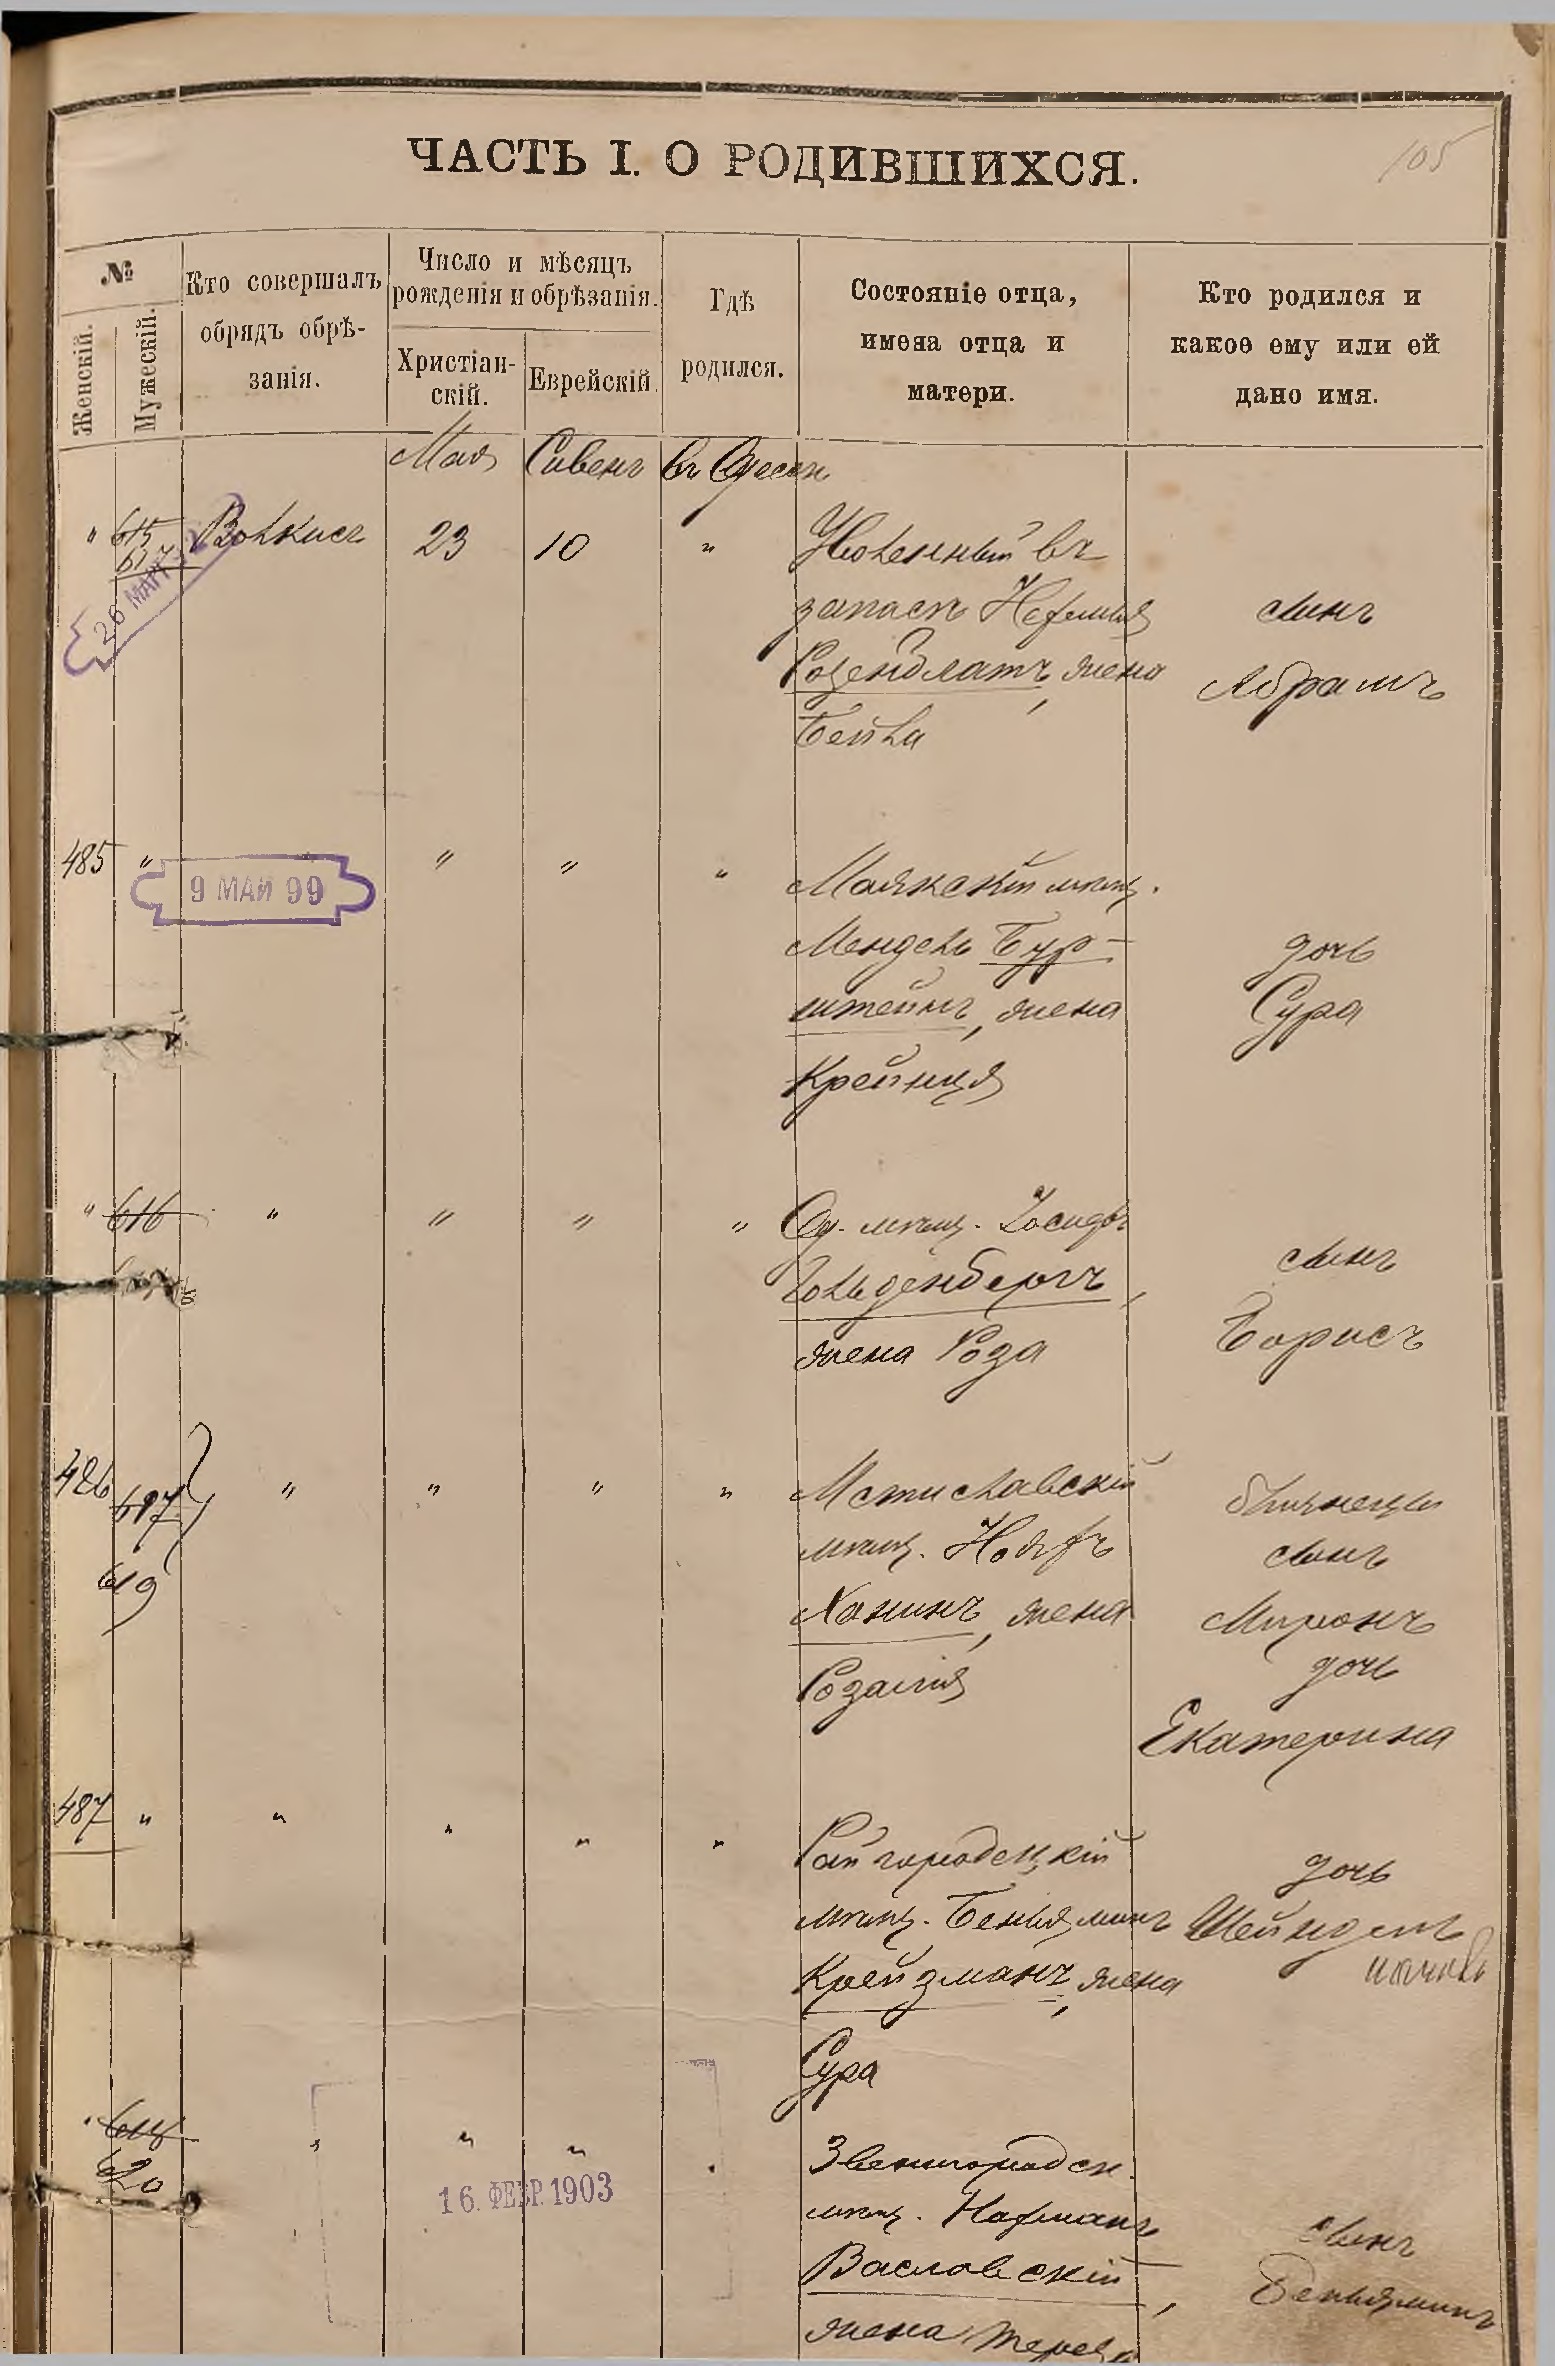 105
ЧАСТЬ I. О РОДИВШИХСЯ.
№
Женскій.
Мужескій.
Кто совершалъ
обрядъ обрѣ-
занія.
Число и мѣсяцъ
рожденія и обрѣзанія.
Христіан-
скій.
Еврейскій.
Гдѣ
родился.
Состояніе отца,
имена отца и
матери.
Кто родился и
какое ему или ей
дано имя.
Мая Сивенъ въ Одессѣ
" 615 Волкисъ 23 10 " Уволенный въ
617
26 МАР
запасъ Нехемія сынъ
Розенблатъ, жена Абрамъ
Бейла
485 " " " " Маякскій мѣщ.
9 МАЙ 99
Мендель Бур- дочь
штейнъ, жена Сура
Крейнця
" 616 " " " " Од. мѣщ. Іосифъ
Гольденбергъ, сынъ
жена Роза Борисъ
486 617 " " " " Мстиславскій близнецы
619
мѣщ. Нояхъ сынъ
Ханинъ, жена Миронъ
Розалія дочь
Екатерина
487 " " " " " Райгородецкій дочь
мѣщ. Беньяминъ Шейндель
Крейзманъ, жена
Сура
618 " " " Звенигородск.
620
16. ФЕВР. 1903
мѣщ. Нахманъ сынъ
Васловскій, Беньяминъ
жена Тереза